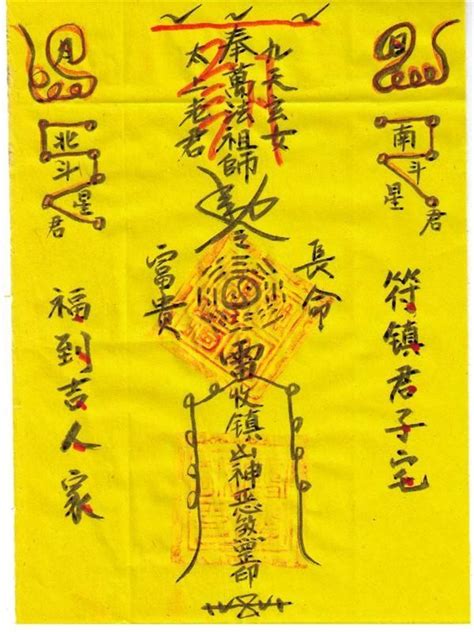 南斗星君
符镇君子宅
九天玄女
長命
奉萬法祖師
雷收镇凶神恶煞罡印
太上老君
富貴
月
北斗星君
福到吉人家